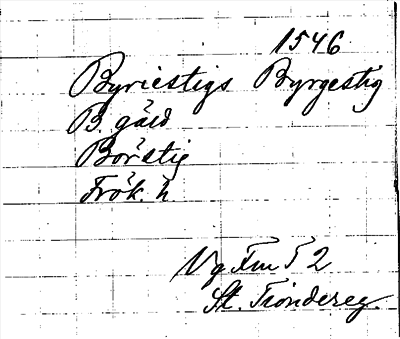 1546
Byriestigs Byrgestig
B. gård
Börstig
Frök. h.
Vg Fm 5 2
St. Tröndereg.